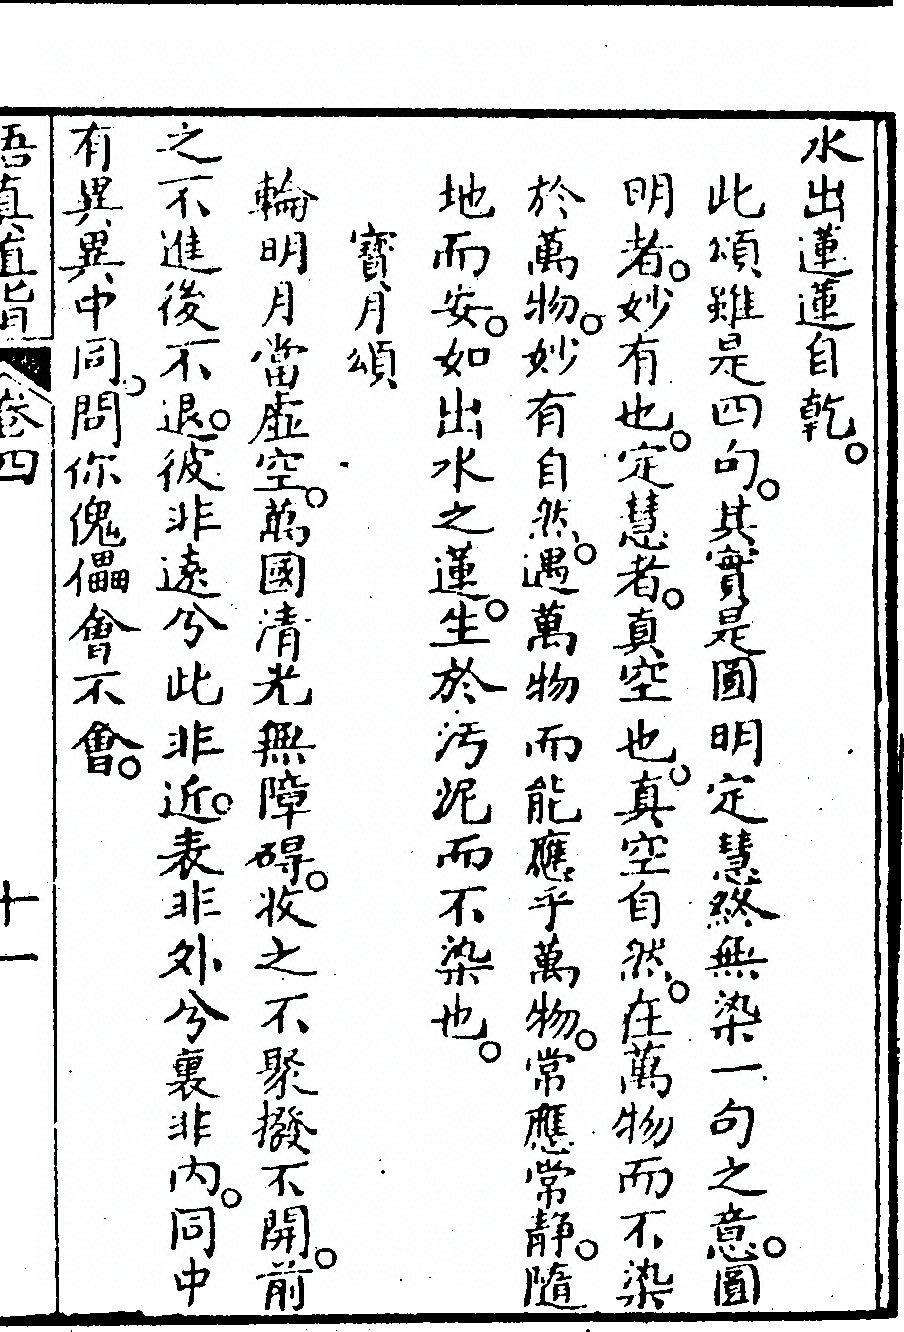 水出蓮蓮自乾。
此頌雖是四句。其實是圓明定慧終無染一句之意。圓
明者。妙有也。定慧者。真空也。真空自然。在萬物而不染
於萬物。妙有自然。遇萬物而能應乎萬物。常應常靜。隨
地而安。如出水之蓮。生於污泥而不染也。
寶月頌
輪明月當虛空。萬國清光無障碍。收之不聚撥不開。前
之不進後不退。彼非遠兮此非近。表非外兮裏非內。同中
有異異中同。問你傀儡會不會。
悟真直指 卷四 十一